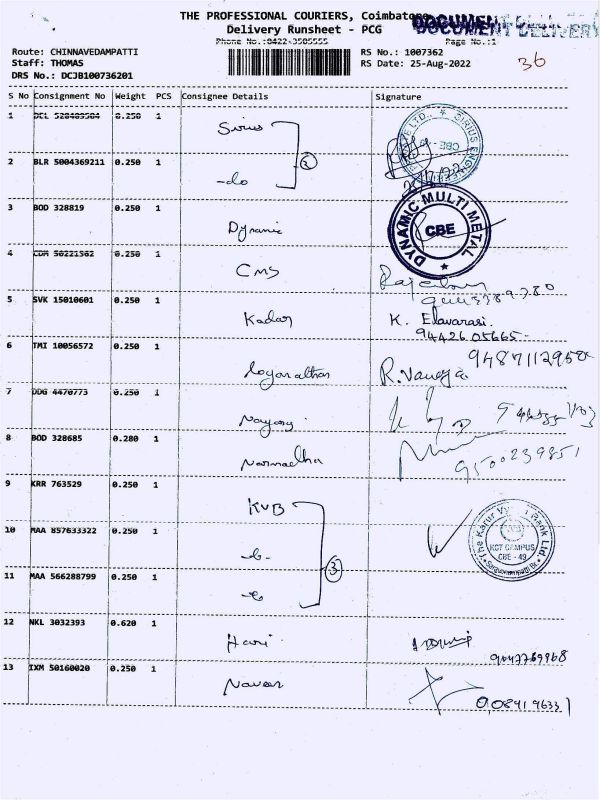 THE PROFESSIONAL COURIERS, Coimbatore
DOCUMENT DELIVERY
Delivery Runsheet - PCG
Phone No.:0422-3585555
Page No.:1
Route: CHINNAVEDAMPATTI
RS No.: 1007362
Staff: THOMAS
RS Date: 25-Aug-2022
36
DRS No.: DCJB100736201
S No Consignment No Weight PCS Consignee Details Signature
1 0.250 1 Sirius
SIRIUS ENGINEERING CBE
2 BLR 5004369211 0.250 1 -do
2
3 BOD 328819 0.250 1 Dynamic
DYNAMIC MULTI METAL CBE
4 0.250 1 CMS
5 SVK 15010601 0.250 1 Kadar K. Elavarasi.
94426 05665
6 TMI 10056572 0.250 1 Loganathan R. Vanaja
9487112958
7 DDG 4470773 0.250 1
8 BOD 328685 0.280 1 Narmadha
9500239851
9 KRR 763529 0.250 1 KVB
The Karur Vysya Bank Ltd. KCT CAMPUS CBE - 49
10 MAA 857633322 0.250 1
3
11 MAA 566288799 0.250 1
12 NKL 3032393 0.620 1 Hari
13 IXM 50160020 0.250 1 Naveen